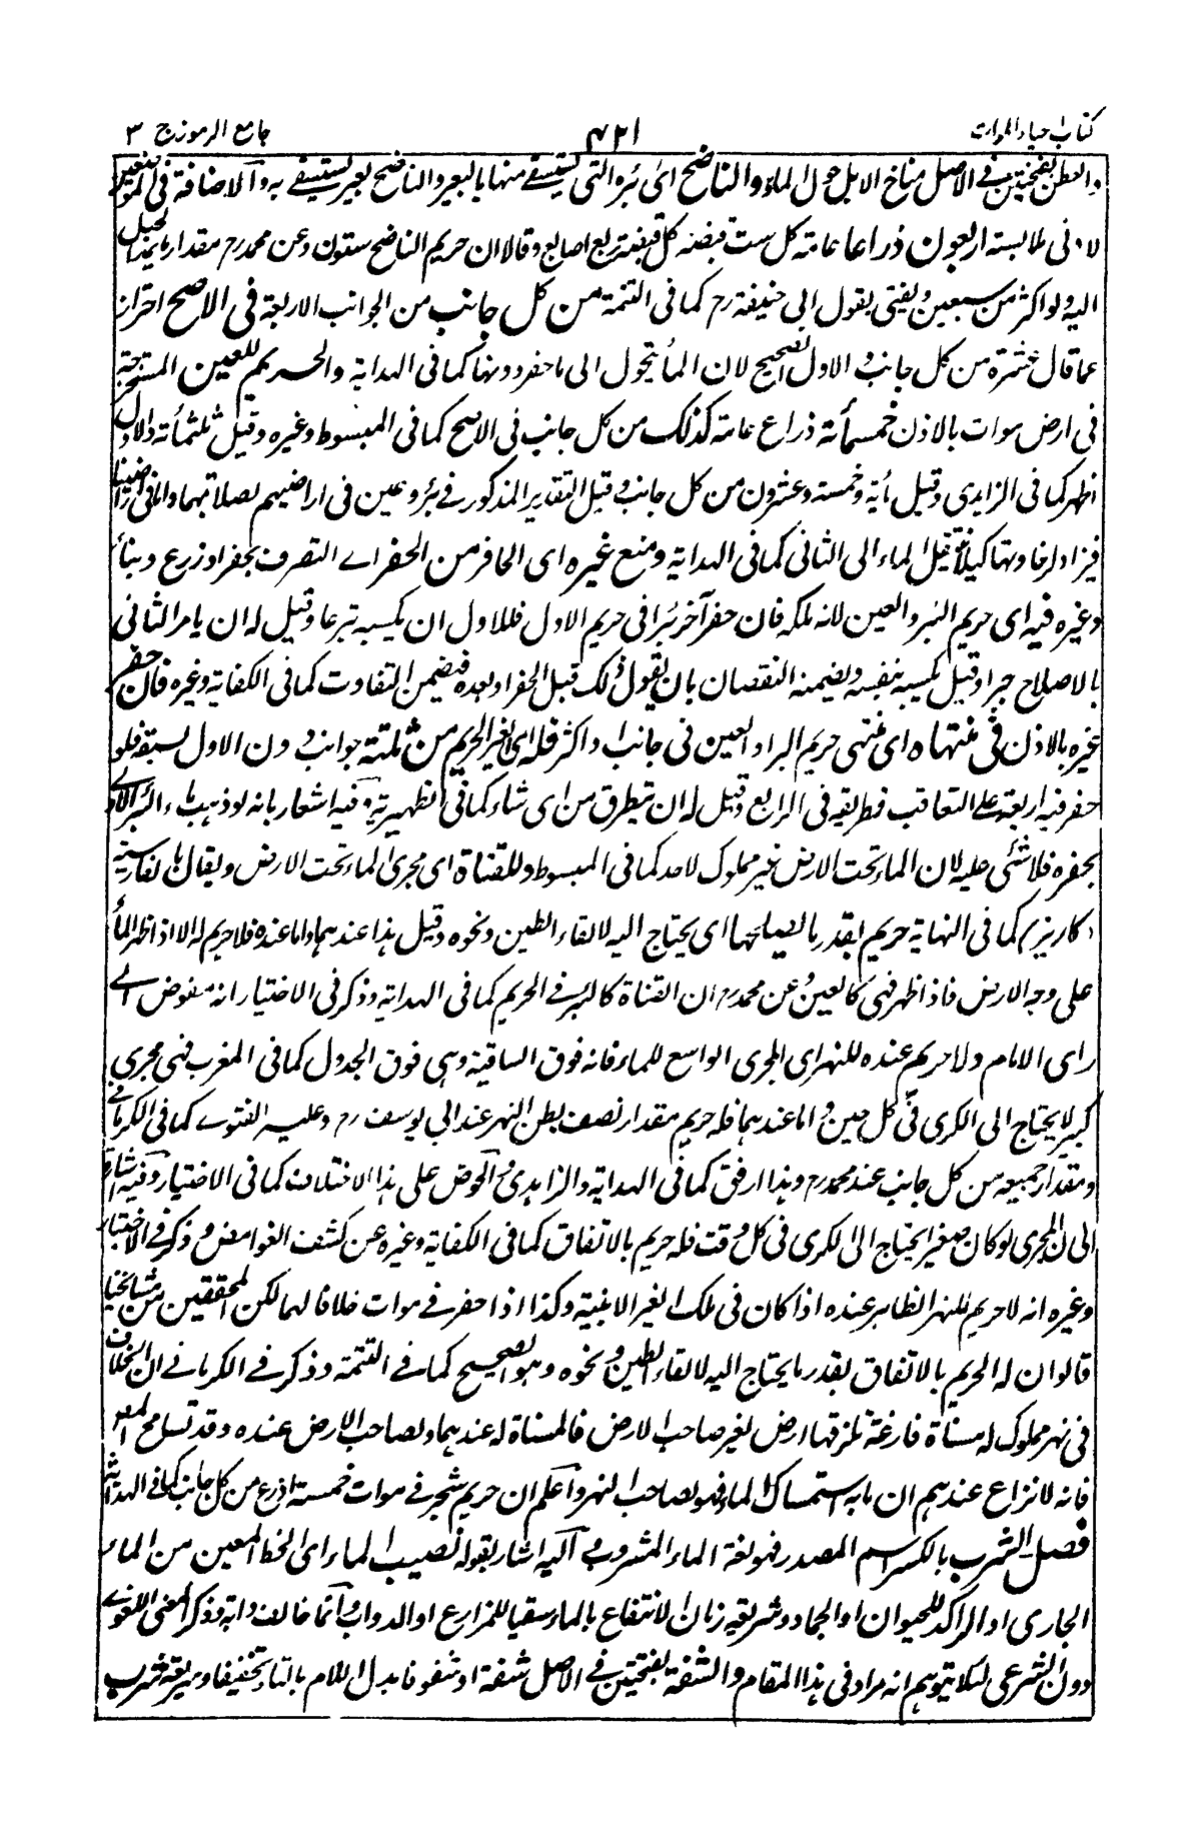 كتاب احياء الموات ٤٢١ جامع الرموز ج ٣
والعطن بفتحتين فى الاصل مناخ الابل حول الماء والناضح اى بئره التى يستسقى منها بالبعير والناضح بعير يستسقى به والاضافة فى الموضعين
لادنى ملابسة اربعون ذراعا عامة كل ست قبضه كل قبضة اربع اصابع وقالا ان حريم الناضح ستون وعن محمد رح مقدار ما يمتد الحبل
اليه ولو اكثر من سبعين ويفتى بقول ابى حنيفة رح كما فى التتمة من كل جانب من الجوانب الاربعة فى الاصح احترازا
عما قال عشرة من كل جانب والاول الصحيح لان الماء يتحول الى ما حفر دونها كما فى الهداية والحريم للعين المستخرجة
فى ارض موات بالاذن خمسمأئة ذراع عامة كذلك من كل جانب فى الاصح كما فى المبسوط وغيره وقيل ثلثمأئة والاول
اظهر كما فى الزاهدى وقيل مأية وخمسة وعشرون من كل جانب وقيل التقدير المذكور فى بئر وعين فى اراضيهم لصلابتها واما فى اراضينا
فيزاد لرخاوتها كيلا يتحول الماء الى الثانى كما فى الهداية ومنع غيره اى الحافر من الحفر اى التصرف بحفر او زرع وبناء
وغيره فيه اى حريم البئر والعين لانه ملكه فان حفر آخر بئرا فى حريم الاول فللاول ان يكبسه تبرعا وقيل له ان يامر الثانى
بالاصلاح جبرا وقيل يكبسه بنفسه ويضمنه النقصان بان يقول ذلك قبل الحفر او بعده فيضمن التفاوت كما فى الكفاية وغيره فان حفر
غيره بالاذن فى منتهاه اى منتهى حريم البئر او العين فى جانب او اكثر فله اى لغير الحريم من ثلثة جوانب دون الاول لسبقه فلو
حفر فيه اربعة على التعاقب فطريقه فى الرابع وقيل له ان يتطرق من اى شاء كما فى الظهيرية وفيه اشعار بانه لو ذهب ماء البئر الاولى
بحفره فلا شئ عليه لان الماء تحت الارض غير مملوك لاحد كما فى المبسوط وللقناة اى مجرى الماء تحت الارض ويقال بالفارسية
(كاريز) كما فى النهاية حريم بقدر ما يصلحها اى يحتاج اليه لالقاء الطين ونحوه وقيل هذا عندهما واما عنده فلا حريم له الا اذا ظهر الماء
على وجه الارض فاذا ظهر فهى كالعين وعن محمد رح ان القناة كالبئر فى الحريم كما فى الهداية وذكر فى الاختيار انه مفوض الى
راى الامام ولا حريم عنده للنهر اى المجرى الواسع للماء فانه فوق الساقية وهى فوق الجدول كما فى المغرب فهى مجرى
كبير لا يحتاج الى الكرى فى كل حين واما عندهما فله حريم مقدار نصف بطن النهر عند ابى يوسف رح وعليه الفتوى كما فى الكرمانى
ومقدار جميعه من كل جانب عند محمد رح وهذا ارفق كما فى الهداية والزاهدى والحوض على هذا الاختلاف كما فى الاختيار وفيه اشارة
الى ان المجرى لو كان صغيرا يحتاج الى الكرى فى كل وقت فله حريم بالاتفاق كما فى الكفاية وغيره عن كشف الغوامض وذكر فى الاختيار
وغيره انه لا حريم للنهر الظاهر عنده اذا كان فى ملك الغير الا ببينة وكذا اذا حفر فى موات خلافا لهما لكن المحققين من مشائخنا
قالوا ان له الحريم بالاتفاق بقدر ما يحتاج اليه لالقاء الطين ونحوه وهو الصحيح كما فى التتمة وذكر فى الكرمانى ان الخلاف
فى نهر مملوك له مسناة فارغة تلزقها ارض لغير صاحب الارض فالمسناة له عندهما ولصاحب الارض عنده وقد تسامح المص
فانه لا نزاع عندهم ان ما به استمساك الماء فهو لصاحب النهر واعلم ان حريم شجر فى موات خمسة اذرع من كل جانب كما فى الهداية
فصل الشرب بالكسر اسم المصدر فهو لغة الماء المشروب واليه اشار بقوله نصيب الماء اى الحظ المعين من الماء
الجارى او الراكد للحيوان او الجماد وشريعة زمان الانتفاع بالماء سقيا للمزارع او الدواب وانما خالف دابه وذكر المعنى اللغوى
دون الشرعى لئلا يتوهم انه مراد فى هذا المقام والشفة بفتحتين فى الاصل شفهة او شفو فابدل اللام بالتاء تخفيفا وشريعة شرب